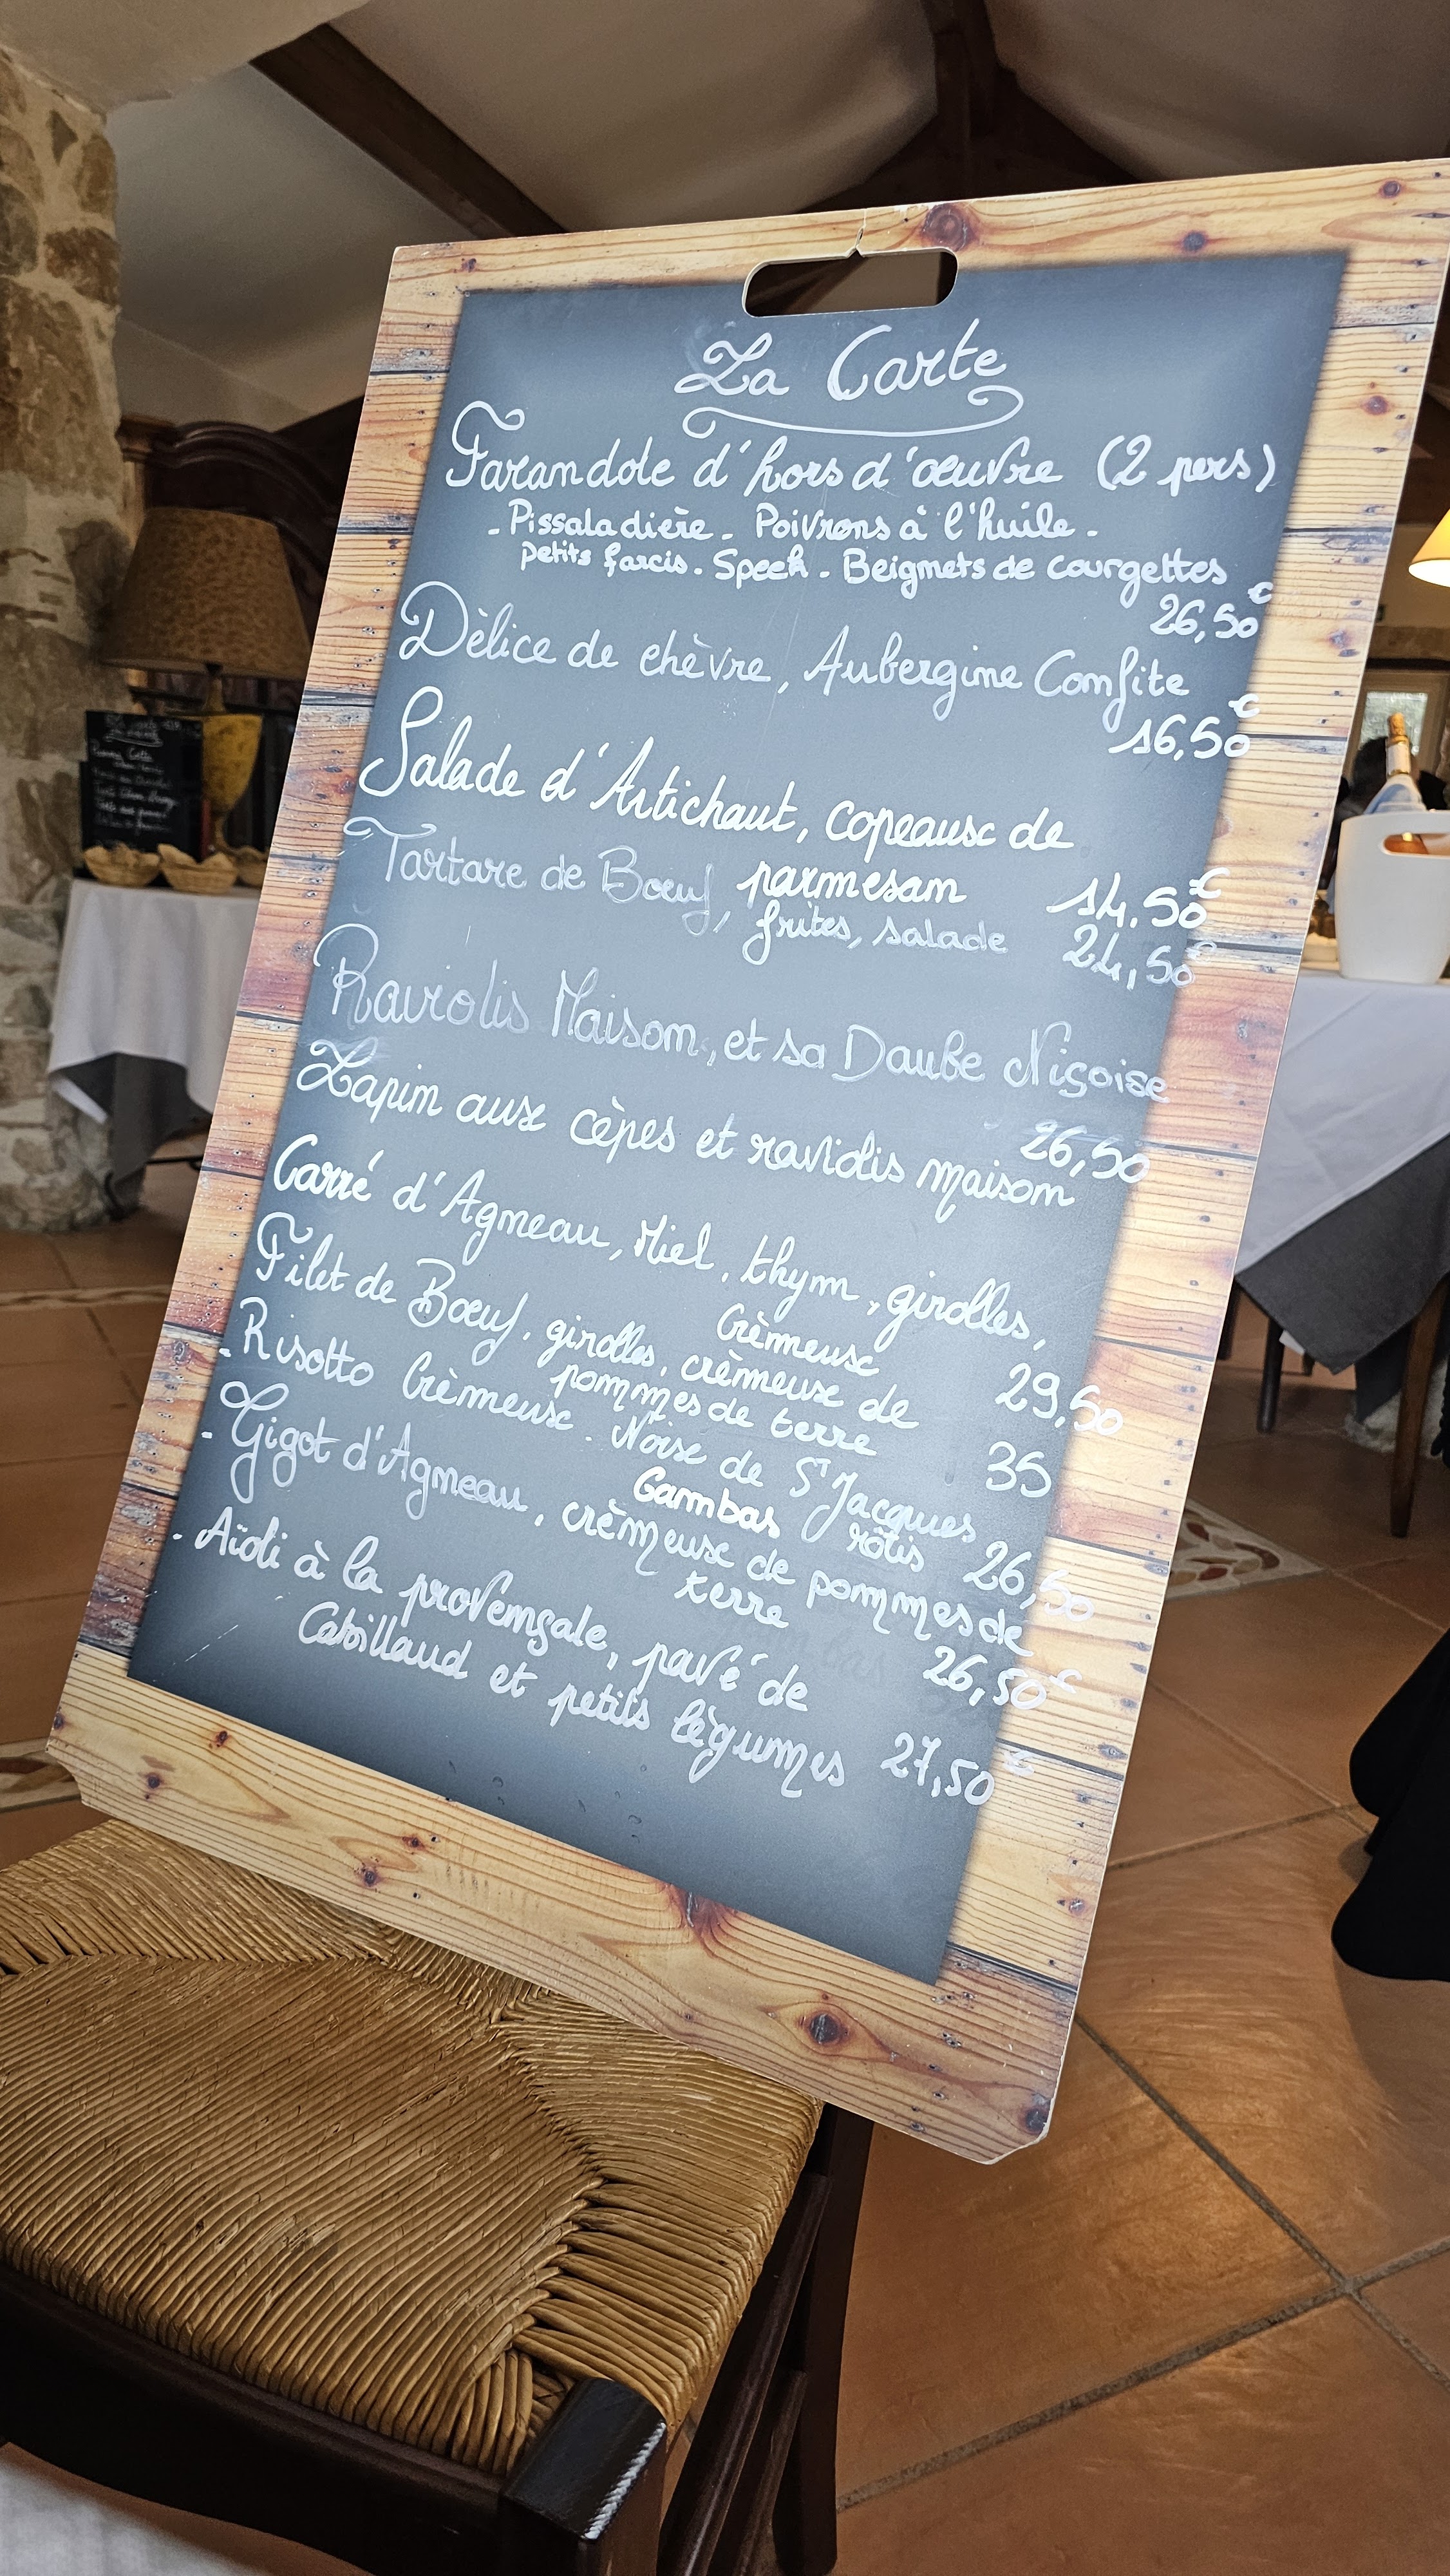 La Carte
Farandole d'hors d'œuvre (2 pers)
- Pissaladière - Poivrons à l'huile -
petits farcis - Speck - Beignets de courgettes
26,50€
Dèlice de chèvre, Aubergine Confite
16,50€
Salade d'Artichaut, copeaux de
parmesan 14.50€
Tartare de Bœuf, frites, salade 24,50€
Raviolis Maison, et sa Daube Niçoise
26,50
Lapin aux cèpes et raviolis maison
Carré d'Agneau, Miel, thym, girolles,
Crèmeux 29,50
Filet de Bœuf, girolles, crèmeux de
pommes de terre 35
- Risotto Crèmeux - Noix de St Jacques
Gambas rôtis 26,50
- Gigot d'Agneau, crèmeux de pommes de
terre 26,50€
- Aïoli à la provençale, pavé de
Cabillaud et petits lègumes 27,50€